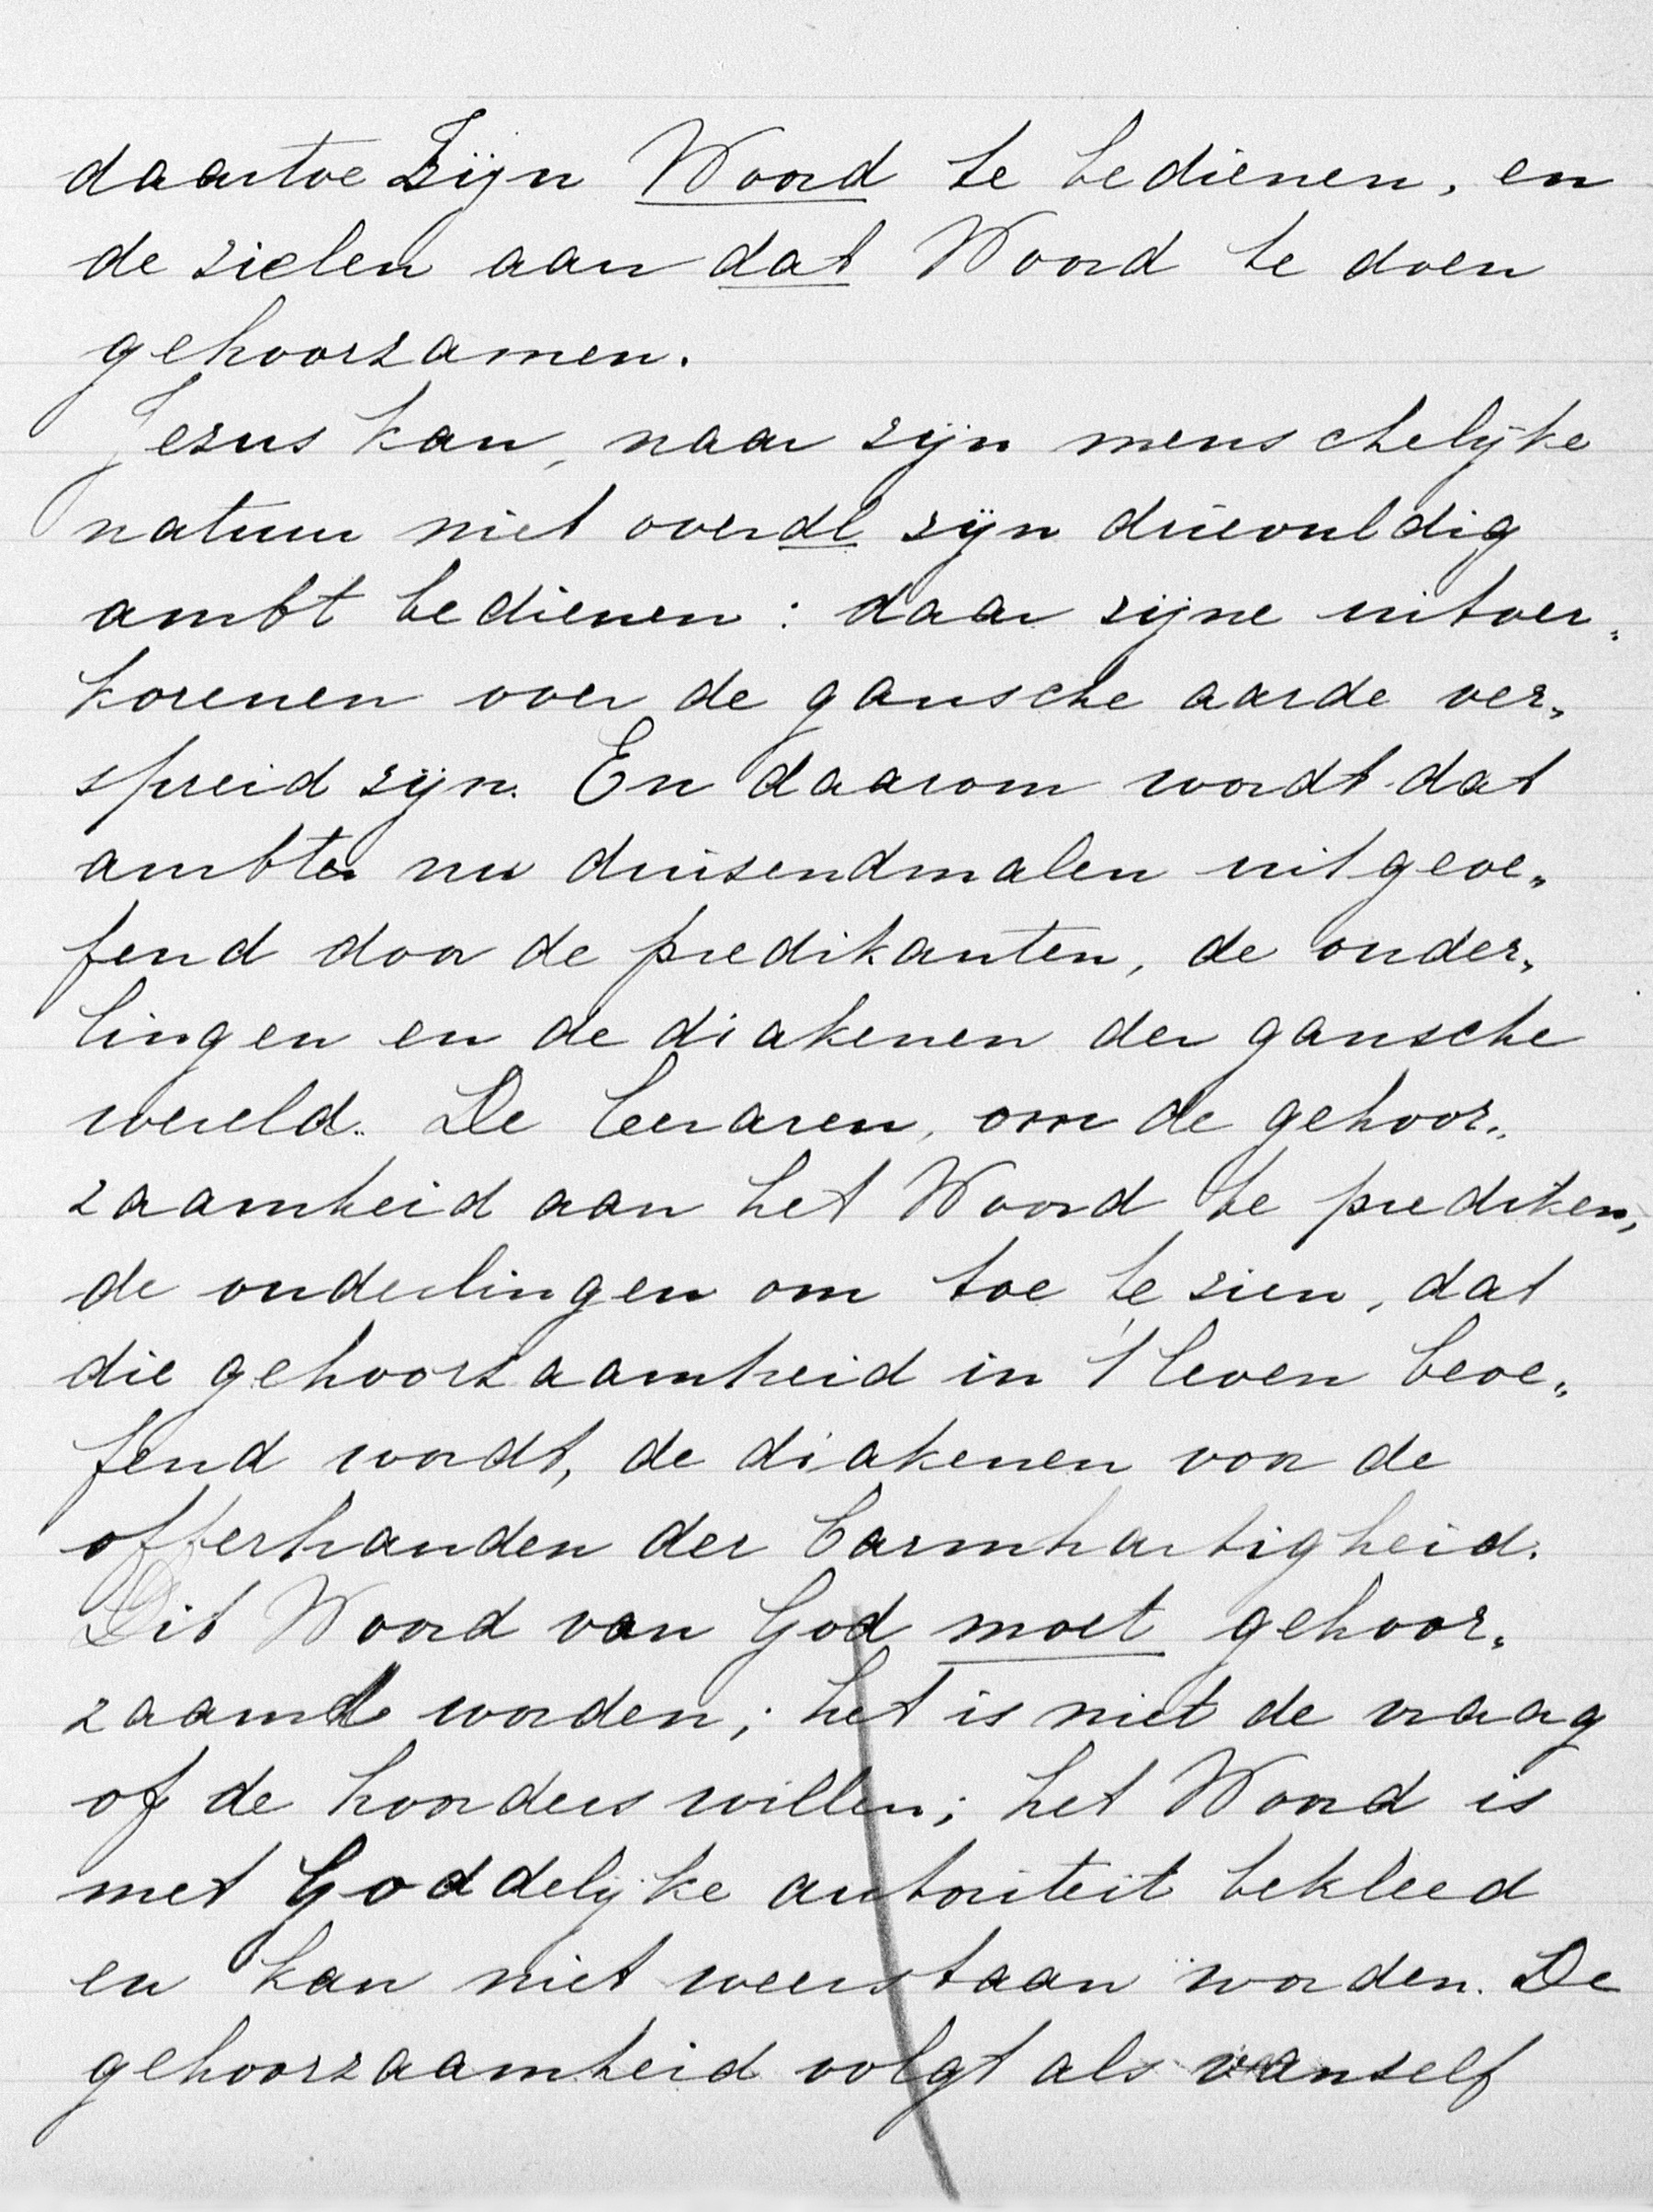 daartoe Zijn Woord te bedienen, en
de zielen aan dat Woord te doen
gehoorzamen.
Jezus kan, naar zijn menschelijke
natuur niet overal zijn drievuldig
ambt bedienen: daar zijne uitver„
korenen over de gansche aarde ver„
spreid zijn. En daarom wordt dat
ambt nu duizendmalen uitgeoe„
fend door de predikanten, de ouder„
lingen en de diakenen der gansche
wereld. De leeraren, om de gehoor„
zaamheid aan het Woord te prediken,
de ouderlingen om toe te zien, dat
die gehoorzaamheid in 't leven beoe„
fend wordt, de diakenen voor de
offerhanden der barmhartigheid.
Dit Woord van God moet gehoor„
zaamd worden; het is niet de vraag
of de hoorders willen; het Woord is
met Goddelijke autoriteit bekleed
en kan niet weerstaan worden. De
gehoorzaamheid volgt als vanself